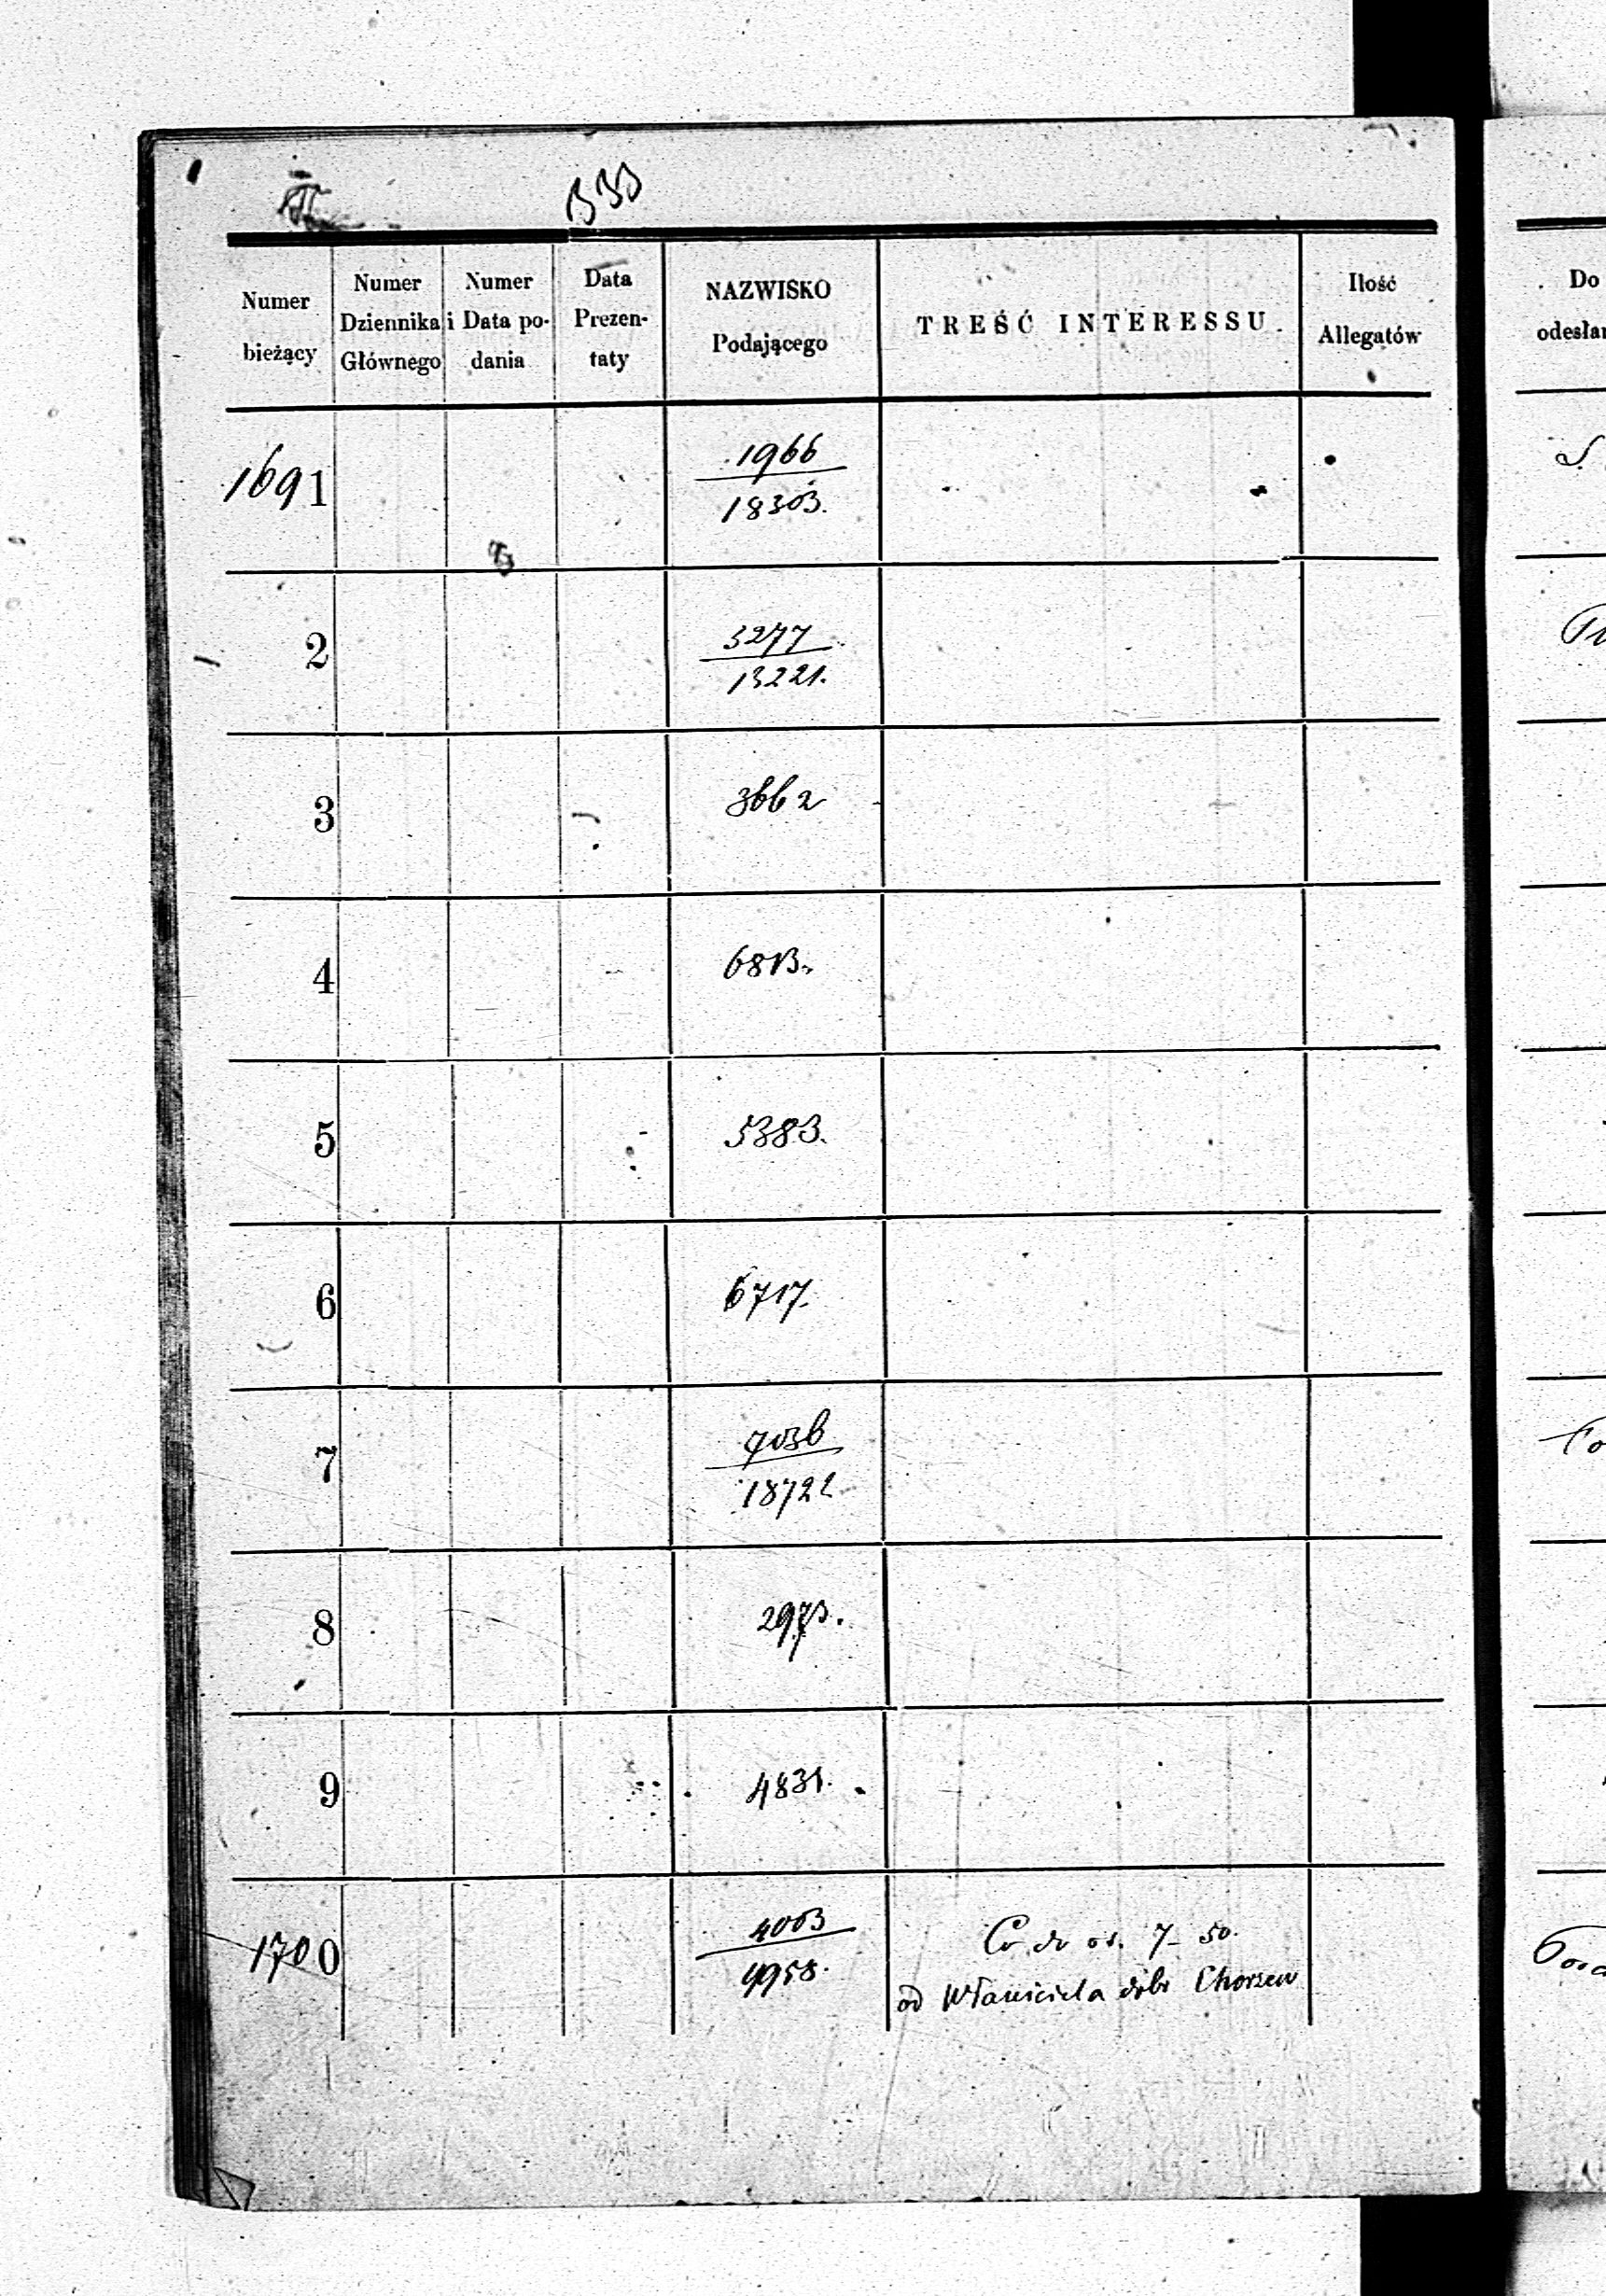 Numer bieżący
Numer Dziennika Głównego
Numer i Data podania
Data Prezentaty
NAZWISKO Podającego
TREŚĆ INTERESSU.
Ilość Allegatów
Do
1691
1966
18303.
2
3277
13221.
3
3662
4
6813.
5
5383.
6
6717.
7
7036
18722
8
2973.
9
4831.
1700
4003
4958.
Co do os. 7 - 50.
od Właściciela dóbr Chorzew